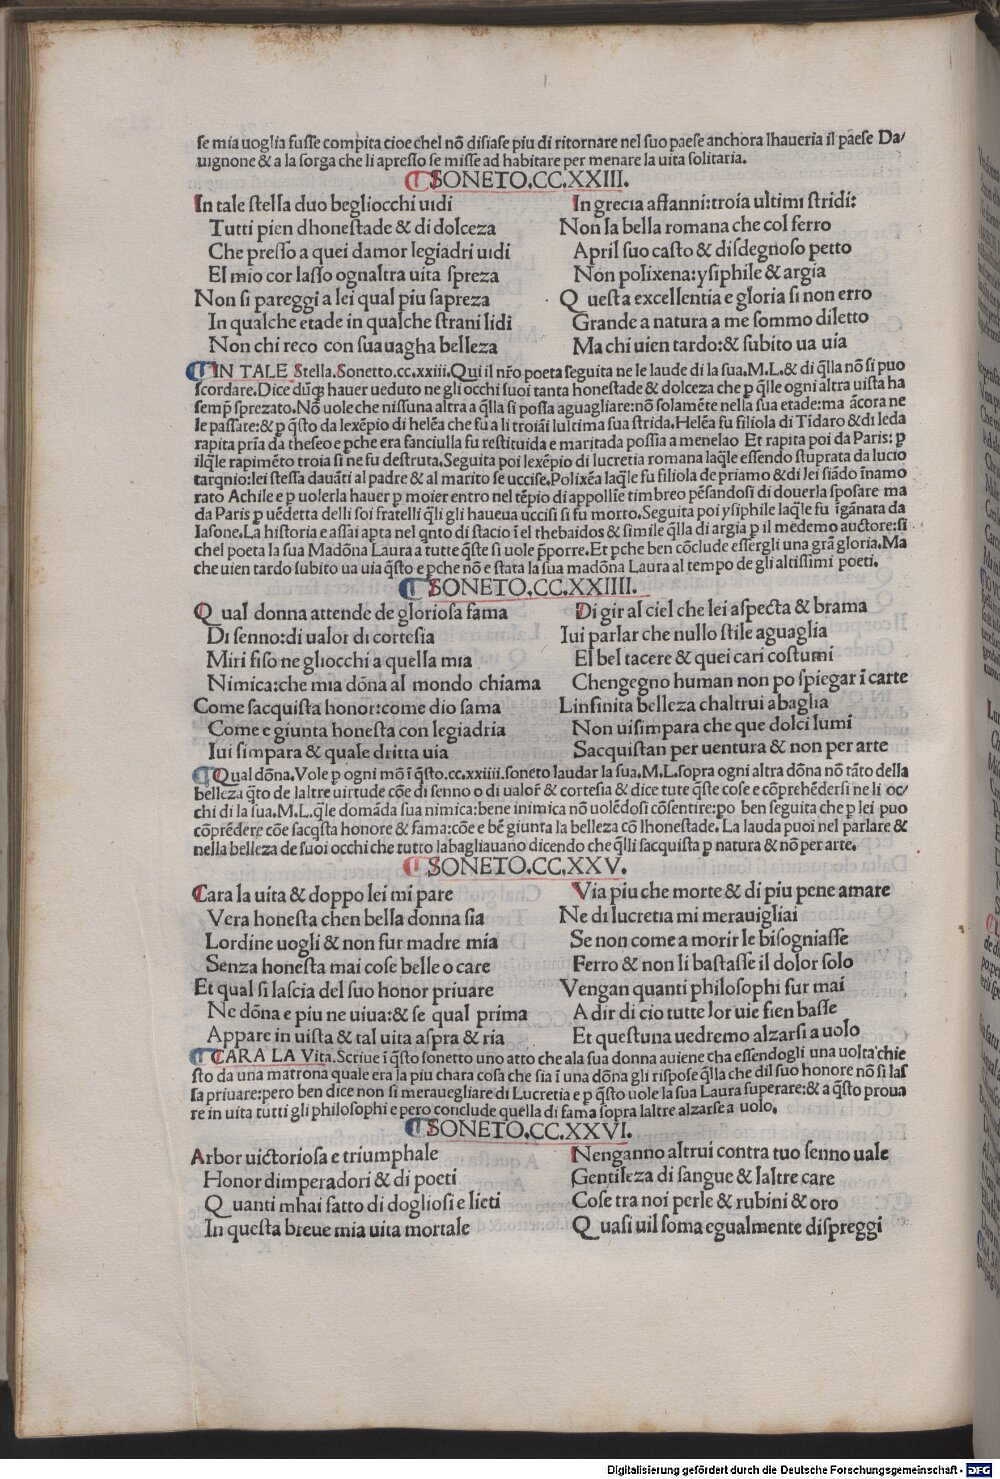 se mia uoglia fusse compita cioe chel nõ disiase piu di ritornare nel suo paese anchora lhaueria il paese Da/
uignone & a la sorga che li apresso se misse ad habitare per menare la uita solitaria.
SONETO.CC.XXIII.
In tale stella duo begliocchi uidi
Tutti pien dhonestade & di dolceza
Che presso a quei damor legiadri uidi
El mio cor lasso ognaltra uita spreza
Non si pareggi a lei qual piu sapreza
In qualche etade in qualche strani lidi
Non chi reco con sua uagha belleza
In grecia affanni:troia ultimi stridi:
Non la bella romana che col ferro
April suo casto & disdegnoso petto
Non polixena:ysiphile & argia
Questa excellentia e gloria si non erro
Grande a natura a me sommo diletto
Ma chi uien tardo:& subito ua uia
IN TALE Stella.Sonetto.cc.xxiii.Qui il nr̃o poeta seguita ne le laude di la sua.M.L.& di q̃lla nõ si puo
scordare.Dice dũq̃ hauer ueduto ne gli occhi suoi tanta honestade & dolceza che p q̃lle ogni altra uista ha
semp̃ sprezato.Nõ uole che nissuna altra a q̃lla si possa aguagliare:nõ solamẽte nella sua etade:ma ãcora ne
le passate:& p q̃sto da lexẽpio di helẽa che fu a li troiãi lultima sua strida.Helẽa fu filiola di Tidaro &di leda
rapita pr̃ia da theseo e pche era fanciulla fu restituida e maritada possia a menelao Et rapita poi da Paris: p
ilq̃le rapimẽto troia si ne fu destruta.Seguita poi lexẽpio di lucretia romana laq̃le essendo stuprata da lucio
tarqnio:lei stessa dauãti al padre & al marito se uccise.Polixẽa laq̃le fu filiola de priamo &di lei siãdo ĩnamo
rato Achile e p uolerla hauer p moier entro nel tẽpio di appollĩe timbreo pẽsandosi di douerla sposare ma
da Paris p uẽdetta delli soi fratelli q̃li gli haueua uccisi si fu morto.Seguita poi ysiphile laq̃le fu ĩgãnata da
Iasone.La historia e assai apta nel qnto di stacio ĩ el thebaidos & simile q̃lla di argia p il medemo auctore:si
chel poeta la sua Madõna Laura a tutte q̃ste si uole p̃porre.Et pche ben cõclude essergli una grã gloria.Ma
che uien tardo subito ua uia q̃sto e pche nõ e stata la sua madõna Laura al tempo de gli altissimi poeti.
SONETO.CC.XXIIII.
Qual donna attende de gloriosa fama
Di senno:di ualor di cortesia
Miri fiso ne gliocchi a quella mia
Nimica:che mia dõna al mondo chiama
Come sacquista honor:come dio sama
Come e giunta honesta con legiadria
Iui simpara & quale dritta uia
Di gir al ciel che lei aspecta & brama
Iui parlar che nullo stile aguaglia
El bel tacere & quei cari costumi
Chengegno human non po spiegar ĩ carte
Linfinita belleza chaltrui abaglia
Non uisimpara che que dolci lumi
Sacquistan per uentura & non per arte
Qual dõna.Vole p ogni mõ ĩ q̃sto.cc.xxiiii.soneto laudar la sua.M.L.sopra ogni altra dõna nõ tãto della
belleza q̃to de laltre uirtude cõe di senno o di ualor & cortesia & dice tute q̃ste cose e cõprehẽdersi ne li oc/
chi di la sua.M.L.q̃le domãda sua nimica:bene inimica nõ uolẽdosi cõsentire:po ben seguita che p lei puo
cõprẽdere cõe sacq̃sta honore & fama:cõe e bẽ giunta la belleza cõ lhonestade. La lauda puoi nel parlare &
nella belleza de suoi occhi che tutto labagliauano dicendo che q̃lli sacquista p natura & nõ per arte.
SONETO.CC.XXV.
Cara la uita & doppo lei mi pare
Vera honesta chen bella donna sia
Lordine uogli & non fur madre mia
Senza honesta mai cose belle o care
Et qual si lascia del suo honor priuare
Ne dõna e piu ne uiua:& se qual prima
Appare in uista & tal uita aspra & ria
Via piu che morte & di piu pene amare
Ne di lucretia mi merauigliai
Se non come a morir le bisogniasse
Ferro & non li bastasse il dolor solo
Vengan quanti philosophi fur mai
A dir di cio tutte lor uie fien basse
Et questuna uedremo alzarsi a uolo
CARA LA Vita.Scriue ĩ q̃sto sonetto uno atto che ala sua donna auiene cha essendogli una uolta chie
sto da una matrona quale era la piu chara cosa che sia ĩ una dõna gli rispose q̃lla che dil suo honore nõ si las
sa priuare:pero ben dice non si merauegliare di Lucretia e p q̃sto uole la sua Laura superare:& a q̃sto proua
re in uita tutti gli philosophi e pero conclude quella di fama sopra laltre alzarse a uolo.
SONETO.CC.XXVI.
Arbor uictoriosa e triumphale
Honor dimperadori & di poeti
Quanti mhai fatto di dogliosi e lieti
In questa breue mia uita mortale
Nenganno altrui contra tuo senno uale
Gentileza di sangue & laltre care
Cose tra noi perle & rubini & oro
Quasi uil soma egualmente dispreggi
Digitalisierung gefördert durch die Deutsche Forschungsgemeinschaft - DFG